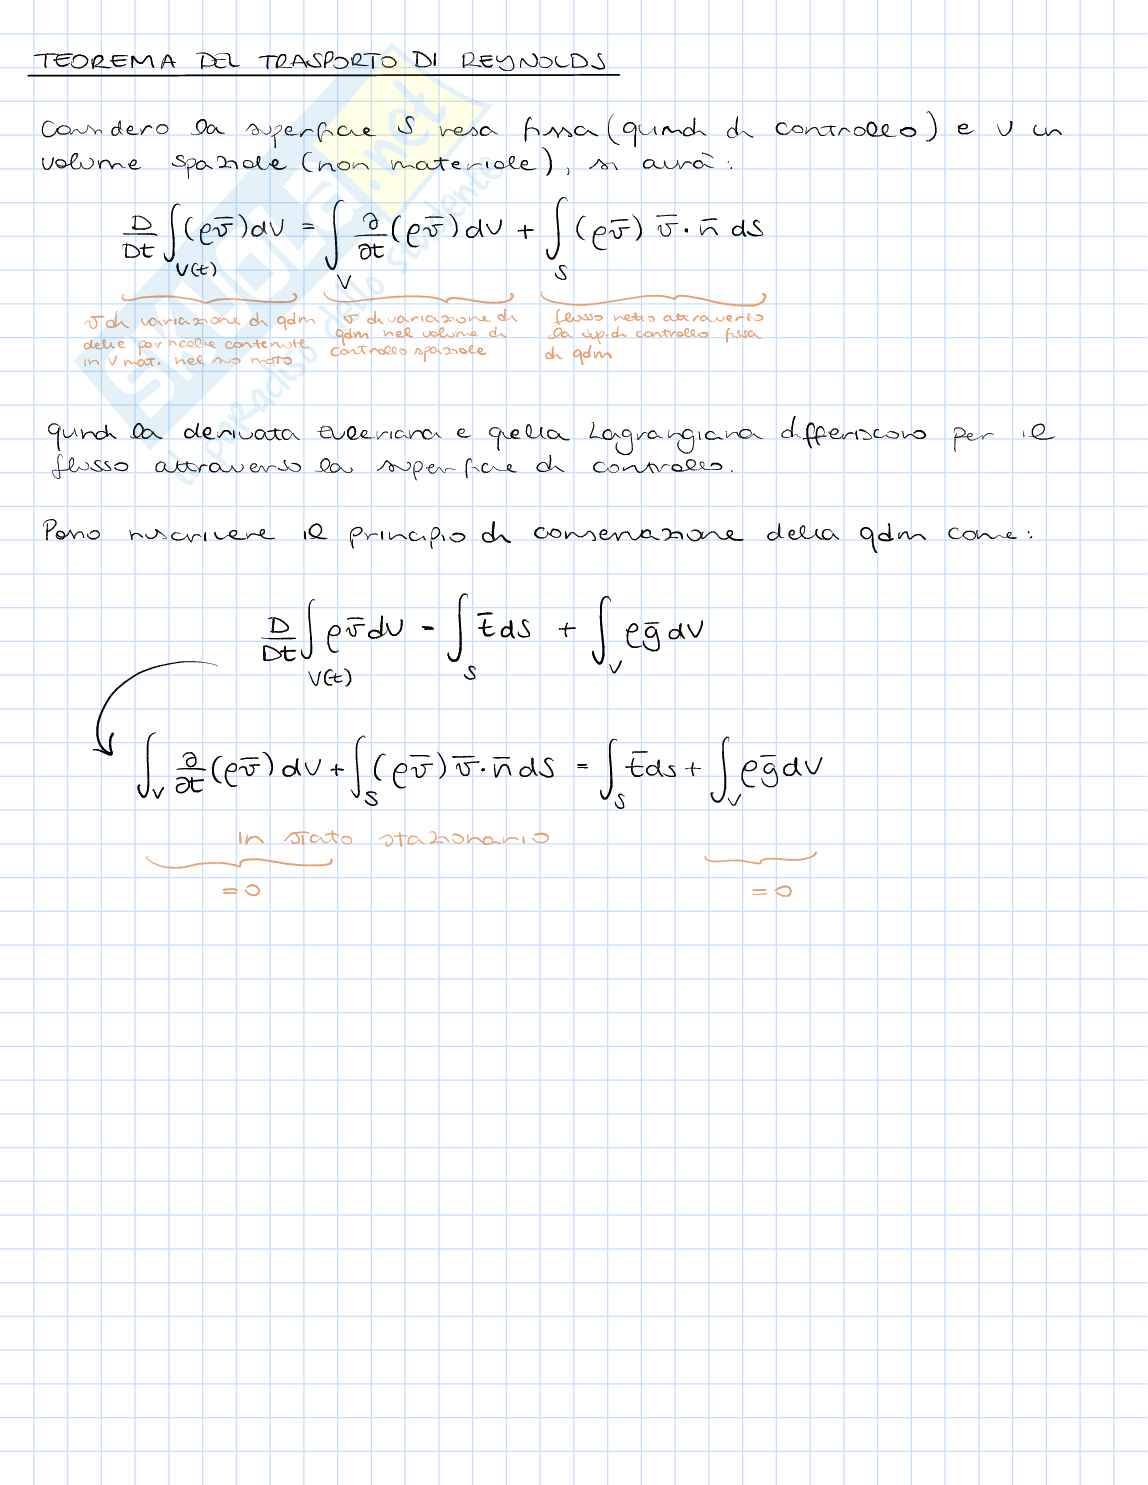 TEOREMA DEL TRASPORTO DI REYNOLDS
Considero la superficie S resa fissa (quindi di controllo) e V un
volume spaziale (non materiale), si avrà:
D/Dt ∫_V(t) (ρv̄) dV = ∫_V ∂/∂t (ρv̄) dV + ∫_S (ρv̄) v̄ · n̄ dS
v di variazione di qdm
delle particelle contenute
in V mat. nel suo moto
v di variazione di
qdm nel volume di
controllo spaziale
flusso netto attraverso
la sup. di controllo fissa
di qdm
quindi la derivata Euleriana e quella Lagrangiana differiscono per il
flusso attraverso la superficie di controllo.
Posso riscrivere il principio di conservazione della qdm come:
D/Dt ∫_V(t) ρv̄ dV = ∫_S t̄ dS + ∫_V ρḡ dV
∫_V ∂/∂t (ρv̄) dV + ∫_S (ρv̄) v̄ · n̄ dS = ∫_S t̄ dS + ∫_V ρḡ dV
in stato stazionario
= 0
= 0
SKUOLA.net
il paradiso dello studente